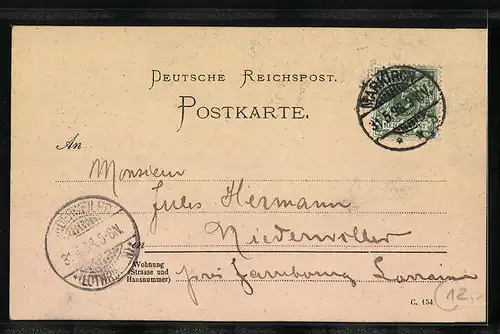 DEUTSCHE REICHSPOST.
POSTKARTE.
MARKIRCH
An
Monsieur
Jules Hermann
in
Niederweiler
Wohnung
(Strasse und
Hausnummer)
près Sarrebourg Lorraine
C. 154
12,-